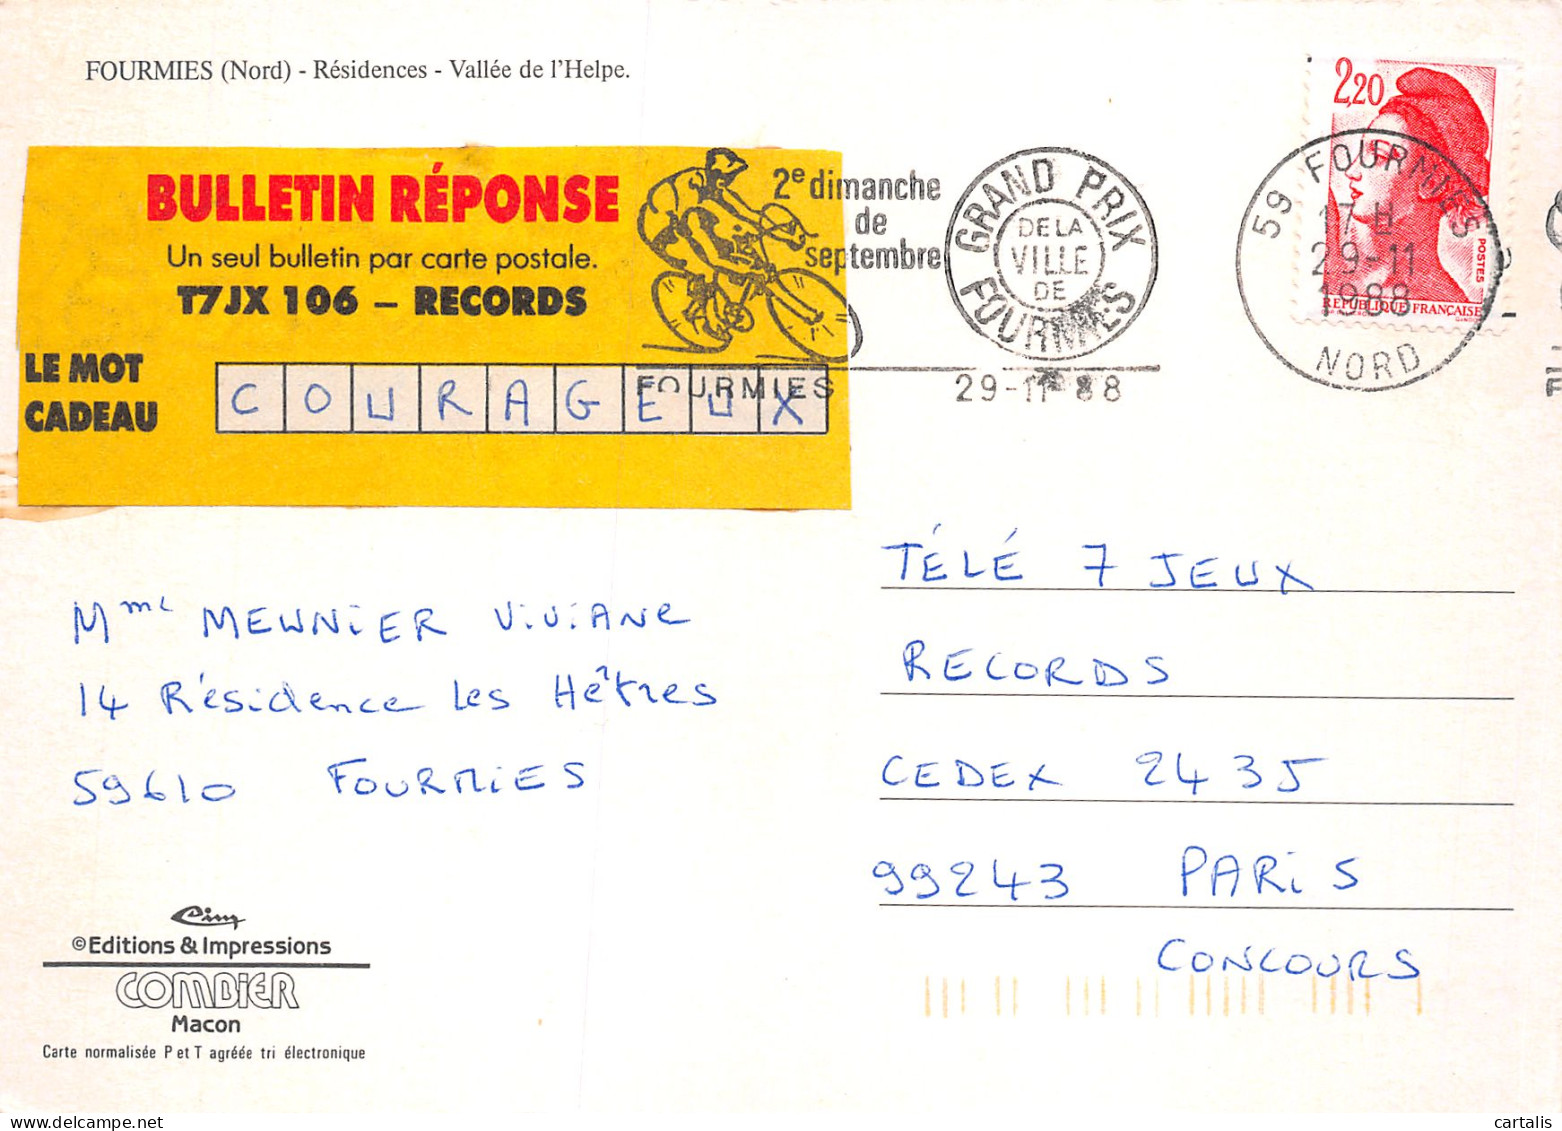 FOURMIES (Nord) - Résidences - Vallée de l'Helpe.
BULLETIN RÉPONSE
Un seul bulletin par carte postale.
T7JX 106 – RECORDS
LE MOT
CADEAU
COURAGEUX
2e dimanche
de
septembre
FOURMIES
GRAND PRIX
DE LA
VILLE
DE
FOURMIES
29-11-88
2,20
POSTES
REPUBLIQUE FRANÇAISE
59 FOURMIES
17 H
29-11
1988
NORD
Mme MEUNIER Viviane
14 Résidence Les Hêtres
59610 FOURMIES
TÉLÉ 7 JEUX
RECORDS
CEDEX 2435
99243 PARIS
CONCOURS
Cim
©Editions & Impressions
COMBIER
Macon
Carte normalisée P et T agréée tri électronique
cartalis